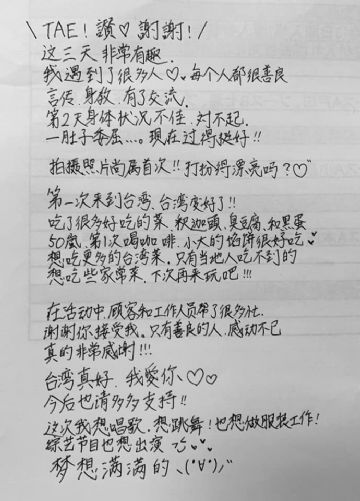 \ TAE! 讚♡謝謝! /
这三天 非常有趣.
我遇到了很多人♡, 每个人都很善良
言传, 身教, 有了交流.
第2天身体状况不佳, 对不起.
一肚子委屈...。现在过得挺好!!
拍摄照片尚属首次!! 打扮得漂亮吗?♡"
第一次来到台湾, 台湾变好了!!
吃了很多好吃的菜. 釈迦頭, 臭豆腐, 和黒蛋
50嵐, 第1次喝咖啡, 小大的馅饼很好吃♥
想吃更多的台湾菜. 只有当地人吃不到的
想吃些家常菜, 下次再来玩吧!!!
在活动中, 顾客和工作人员帮了很多忙.
谢谢你接受我. 只有善良的人, 感动不已
真的非常感谢!!!
台湾真好, 我爱你♡♡
今后也请多多支持!!
这次我想唱歌, 想跳舞! 也想做服装工作!
综艺节目也想出演て♥♥
梦想满满的ヽ(°∀°)ノ"